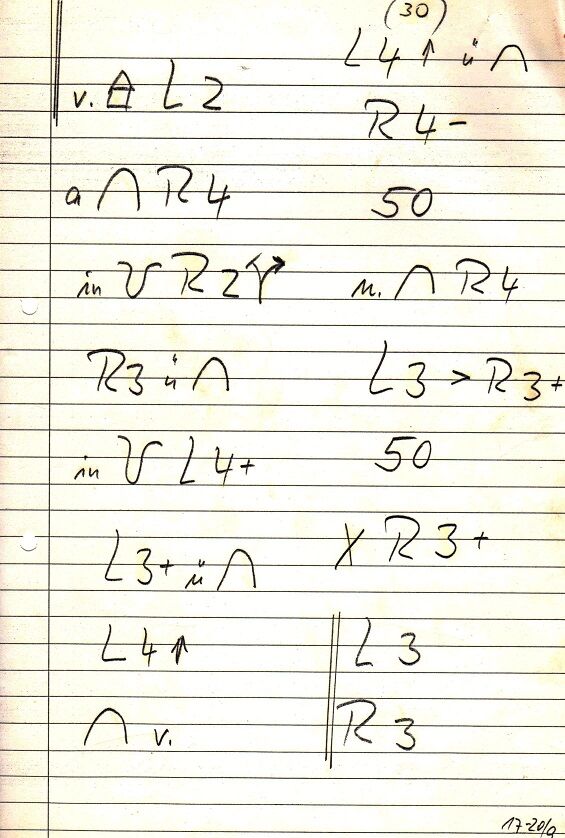 (30)
v. L2
a ∩ R4
in R2
R3 ü ∩
in L4+
L3+ ü ∩
L4↑
∩ v.
L4↑ ü ∩
R4-
50
n. ∩ R4
L3 > R3+
50
X R3+
L3
R3
17-20/a